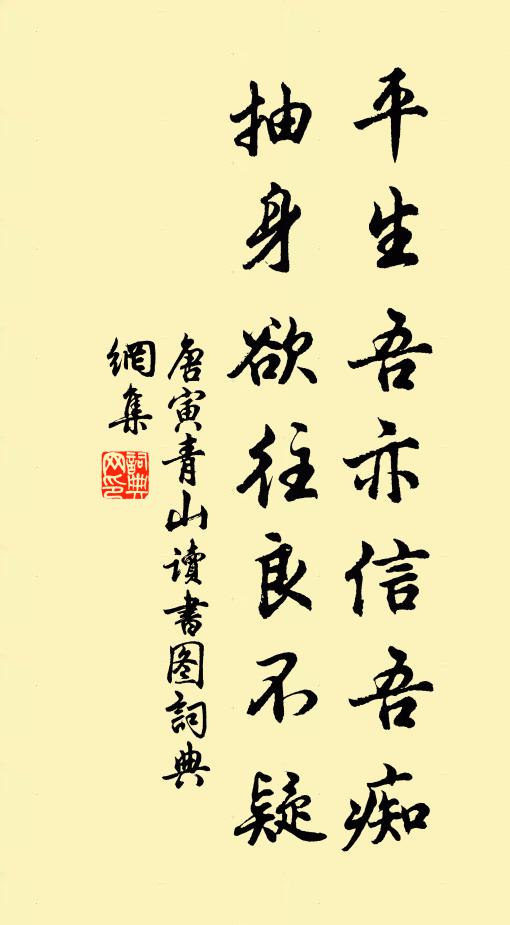 平生吾亦信吾痴
抽身欲往良不疑
唐寅青山讀書图詞典
網集
詞典
网印